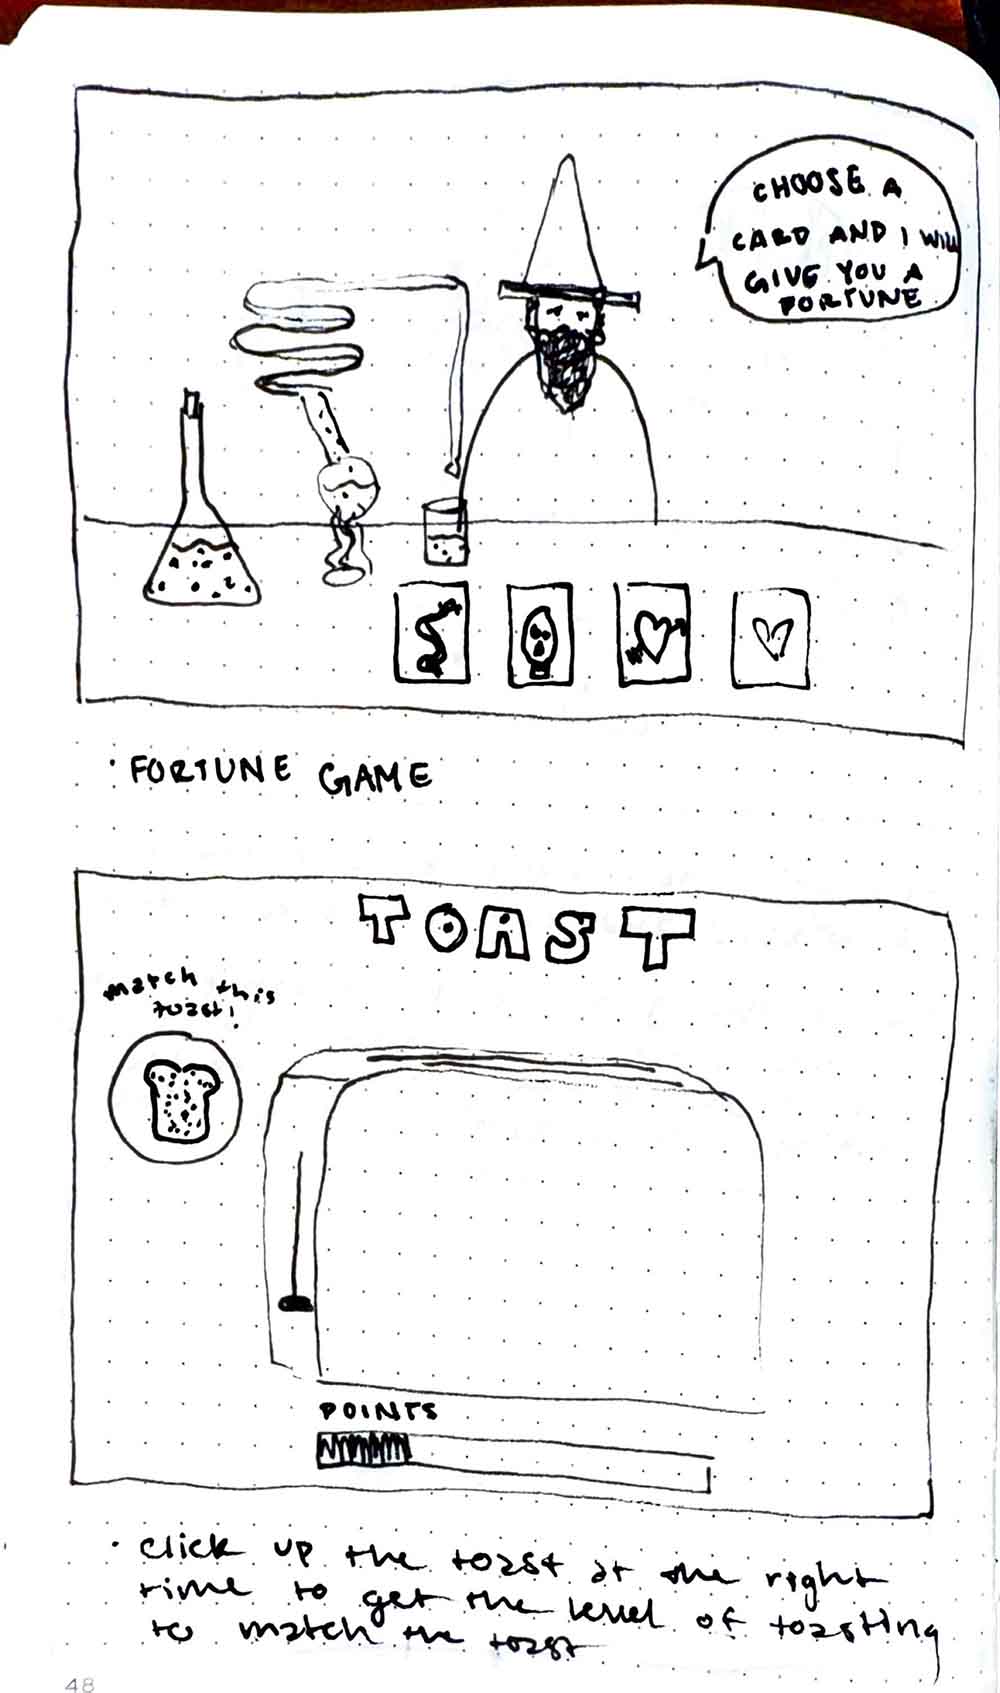 CHOOSE A
CARD AND I WILL
GIVE YOU A
FORTUNE
· FORTUNE GAME
TOAST
match this
toast!
POINTS
· click up the toast at the right
time to get the level of toasting
to match the toast
48